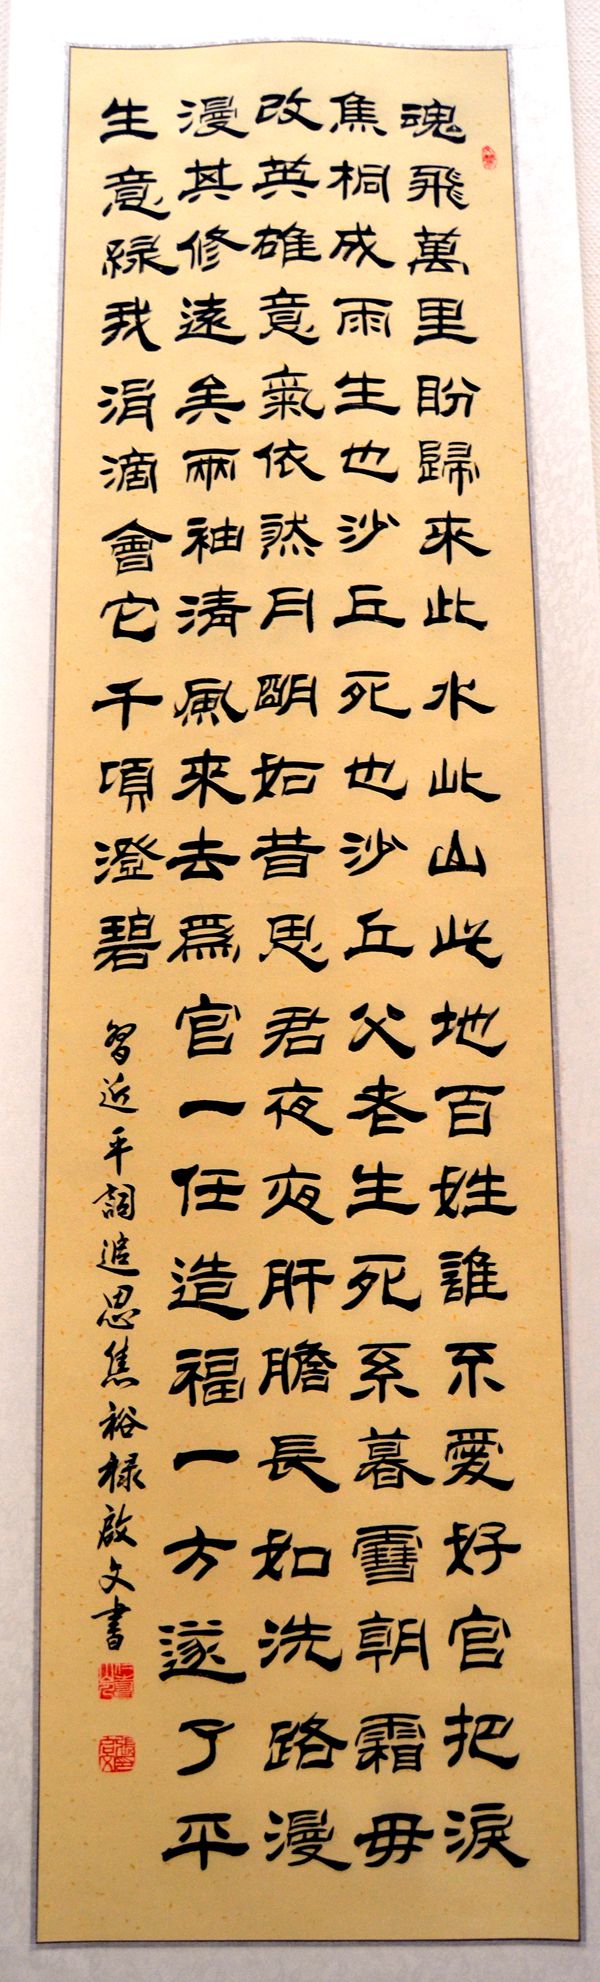 魂飛萬里盼歸來此水此山此地百姓誰不愛好官把淚
焦桐成雨生也沙丘死也沙丘父老生死系暮雪朝霜毋
改英雄意氣依然月明如昔思君夜夜肝膽長如洗路漫
漫其修遠矣兩袖清風來去爲官一任造福一方遂了平
生意綠我涓滴會它千項澄碧
習近平詞追思焦裕禄啟文書